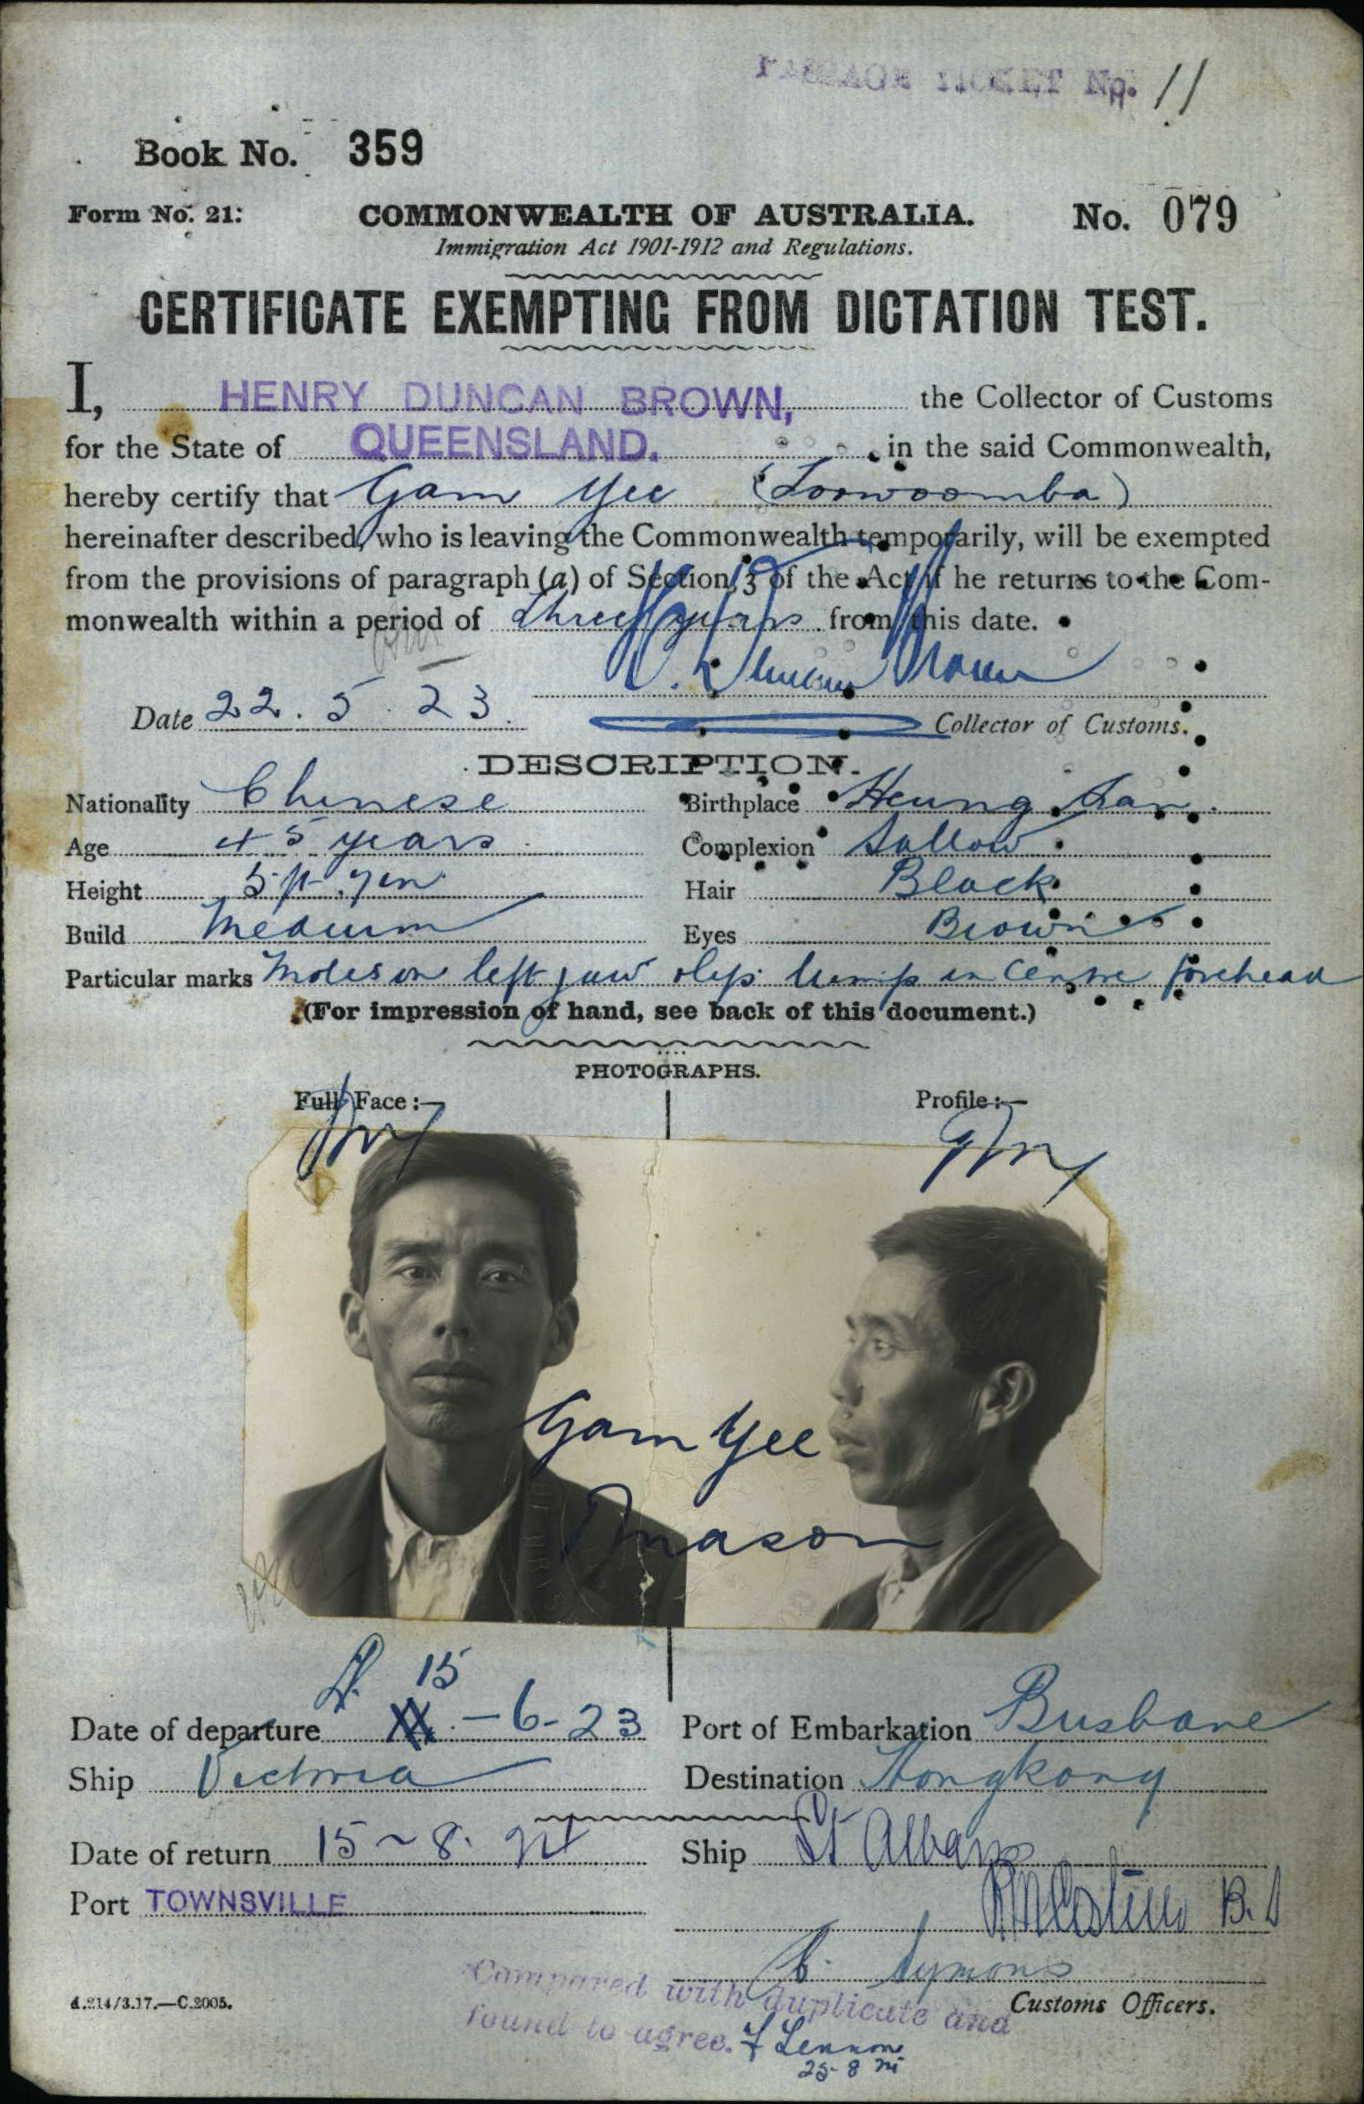 PASSAGE TICKET No. 11
Book No. 359
Form No. 21. COMMONWEALTH OF AUSTRALIA. No. 079
Immigration Act 1901-1912 and Regulations.
CERTIFICATE EXEMPTING FROM DICTATION TEST.
I, HENRY DUNCAN BROWN, the Collector of Customs
for the State of QUEENSLAND. in the said Commonwealth,
hereby certify that Gam Yee (Toowoomba)
hereinafter described, who is leaving the Commonwealth temporarily, will be exempted
from the provisions of paragraph (a) of Section 3 of the Act if he returns to the Com-
monwealth within a period of three years from this date.
H. Duncan Brown
Date 22.5.23. Collector of Customs.
DESCRIPTION.
Nationality Chinese Birthplace Heung San.
Age 45 years Complexion Sallow
Height 5 ft 7 in Hair Black
Build Medium Eyes Brown
Particular marks Moles on left jaw lump in centre forehead
(For impression of hand, see back of this document.)
PHOTOGRAPHS.
Full Face:— Profile:—
Gam Yee
Mason
15
Date of departure -6-23 Port of Embarkation Brisbane
Ship Victoria Destination Hongkong
Date of return 15~8. 24 Ship St Albans
Port TOWNSVILLE
Symons
d.214/3.17.—C.2005. Customs Officers.
Compared with duplicate and
found to agree. F Lennon
25-8